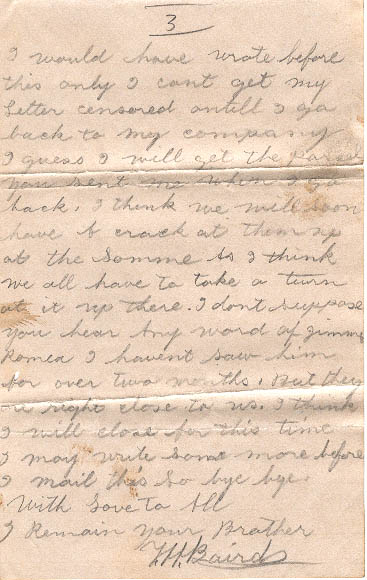 3
I would have wrote before
this only I cant get my
Letter censored untill I go
back to my company
I guess I will get the Parsel
you sent me when I go
back. I think we will soon
have a crack at them up
at the Somme as I think
we all have to take a turn
at it up there. I dont suppose
you hear any word of Jimmie
I havent saw him
for over two months. But they
are right close to us. I think
I will close for this time
I may write some more before
I mail this so bye bye
With Love To All
I Remain your Brother
Baird